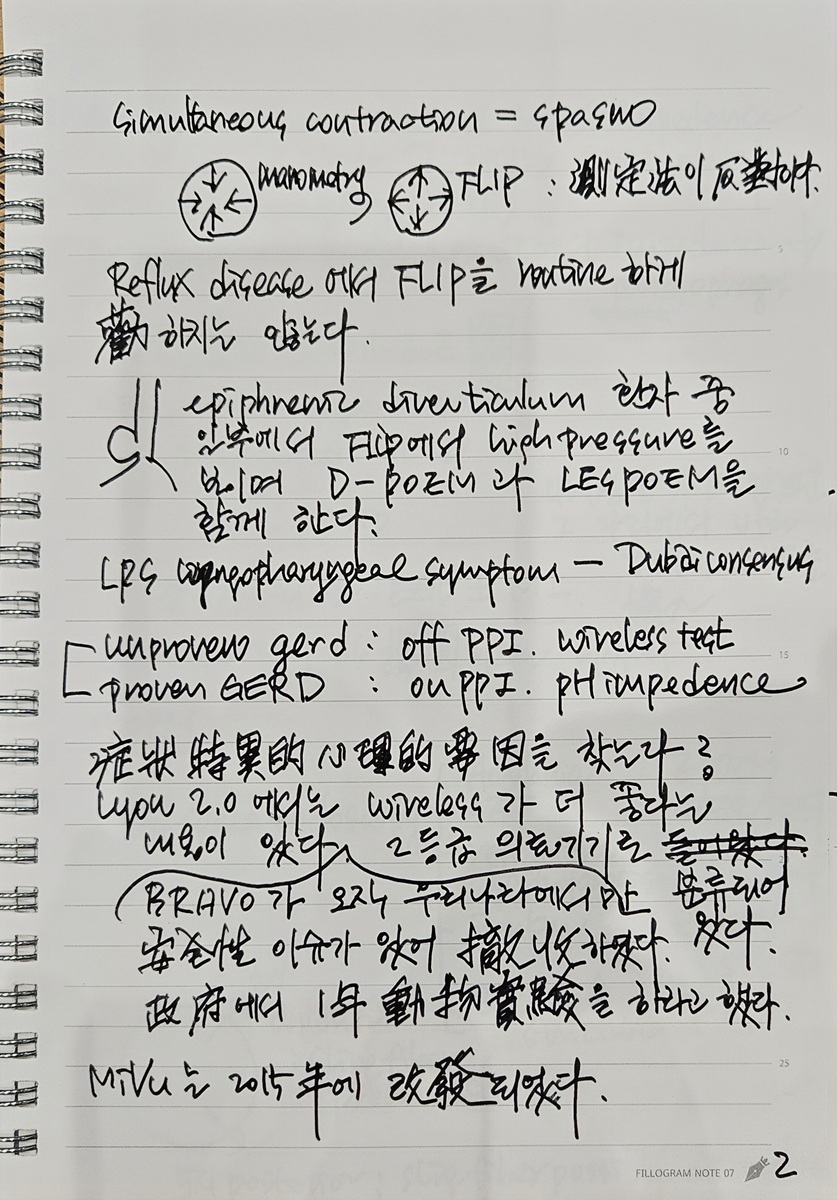 simultaneous contraction = spasm
manometry FLIP : 測定法이 反對하다.
Reflux disease 에서 FLIP을 routine 하게
勸하지는 않는다.
epiphrenic diverticulum 환자 중
일부에서 FLIP에서 high pressure를
보이며 D-POEM과 LES POEM을
함께 한다.
LPS laryngopharyngeal symptom — Dubai consensus
unproven gerd : off PPI. wireless test
proven GERD : on PPI. pH impedence
症狀 特異的 心理的 要因을 찾는다?
Lyon 2.0 에서는 wireless가 더 좋다는
내용이 있다. 2등급 의료기기로 들어있다.
분류되어
BRAVO가 오직 우리나라에서만
있다.
安全性 이슈가 있어 撤收하였다.
政府에서 1年 動物實驗을 하라고 했다.
MiVu는 2015年에 改發되었다.
5
10
15
25
FILLOGRAM NOTE 07
2